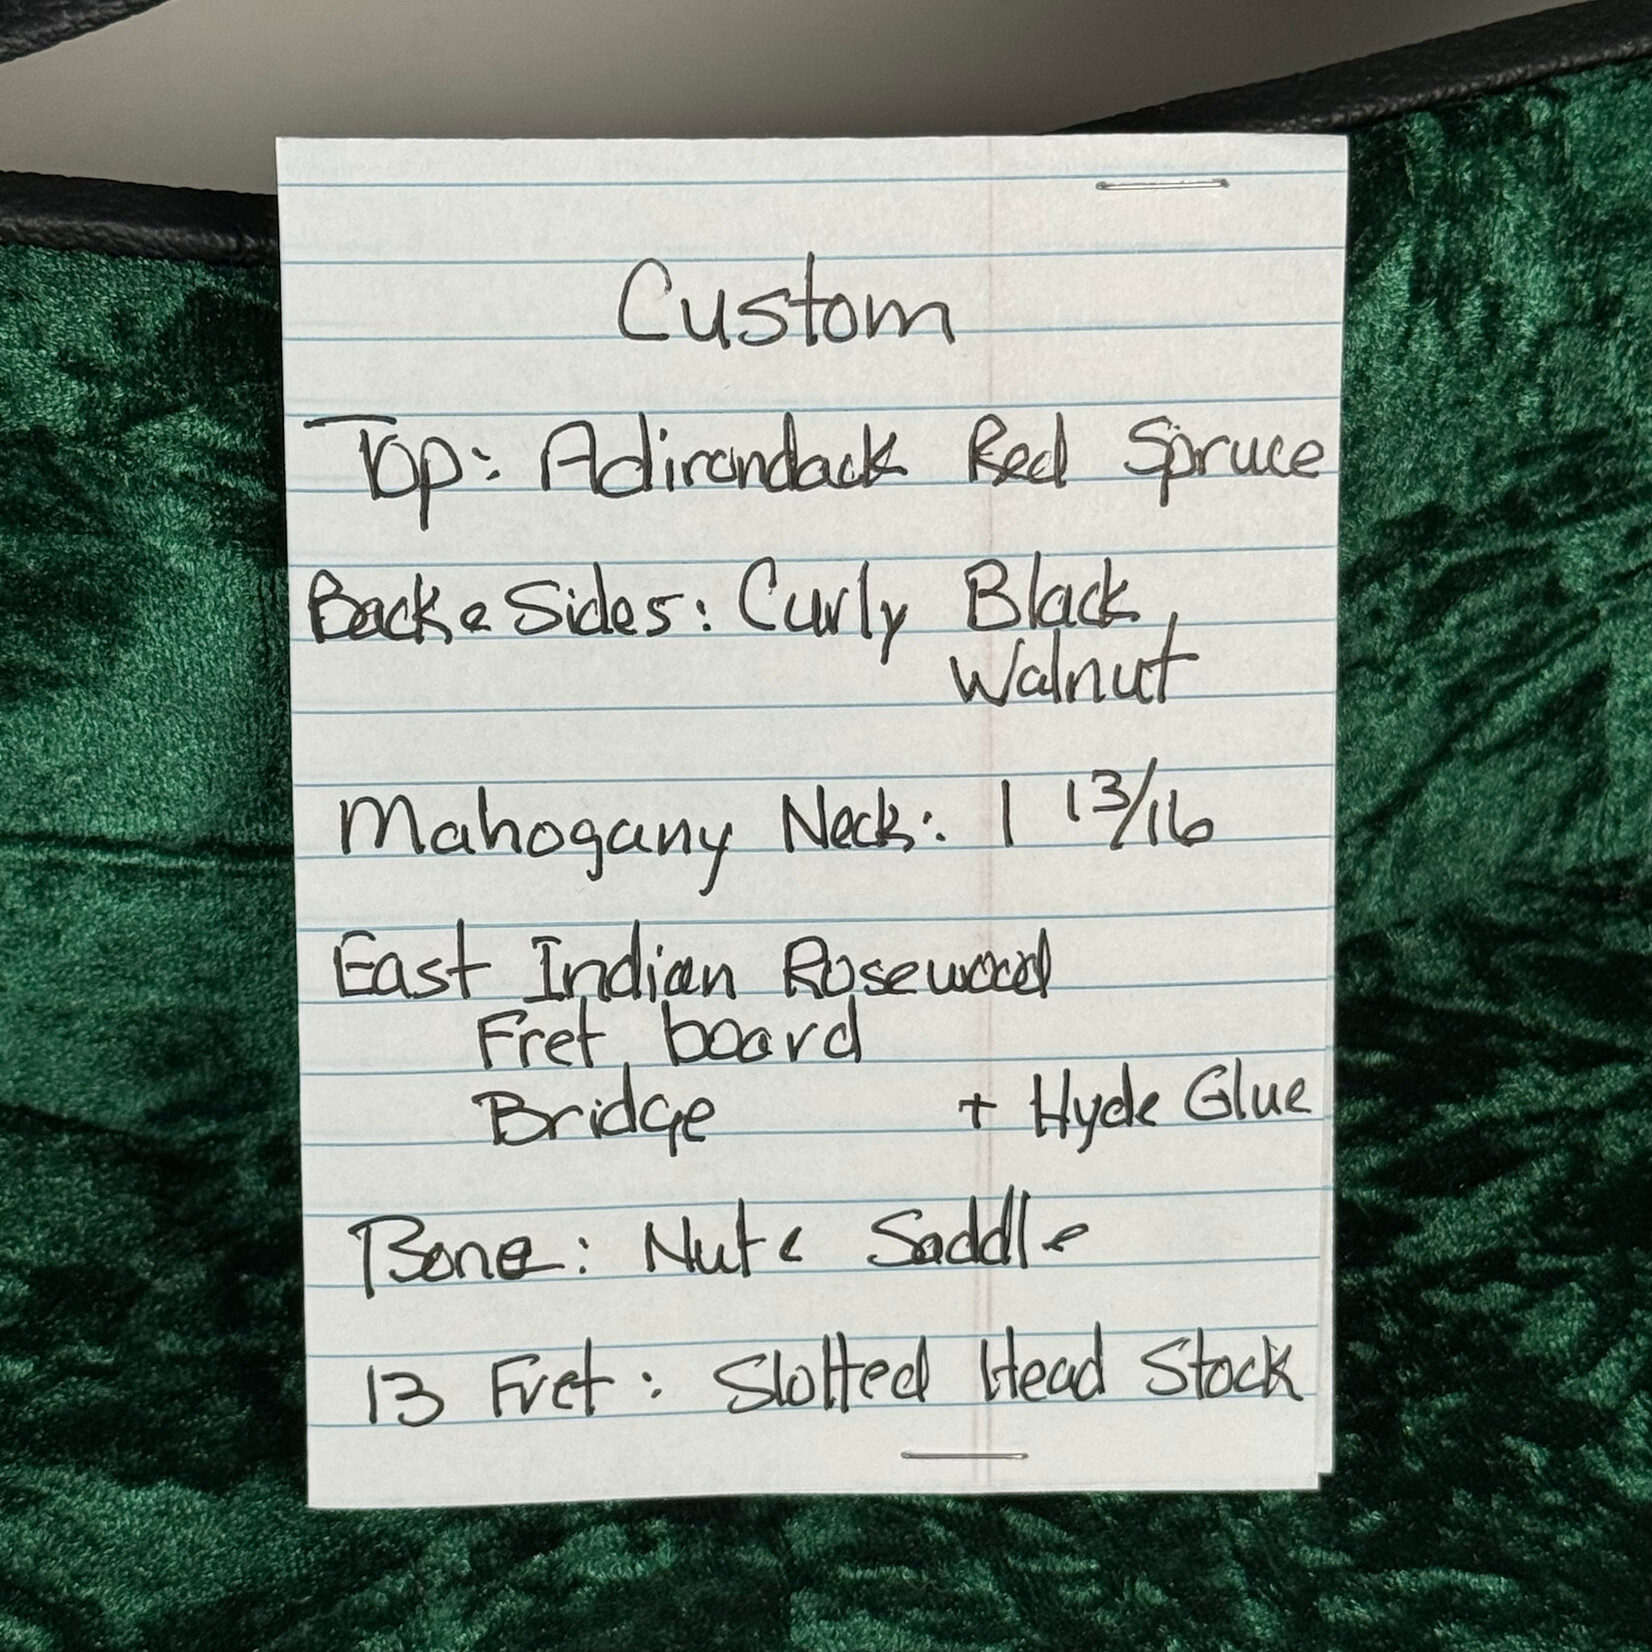 Custom
Top: Adirondack Red Spruce
Back & Sides: Curly Black
Walnut
Mahogany Neck: 1 13/16
East Indian Rosewood
Fret board
Bridge + Hyde Glue
Bone: Nut & Saddle
13 Fret: Slotted Head Stock